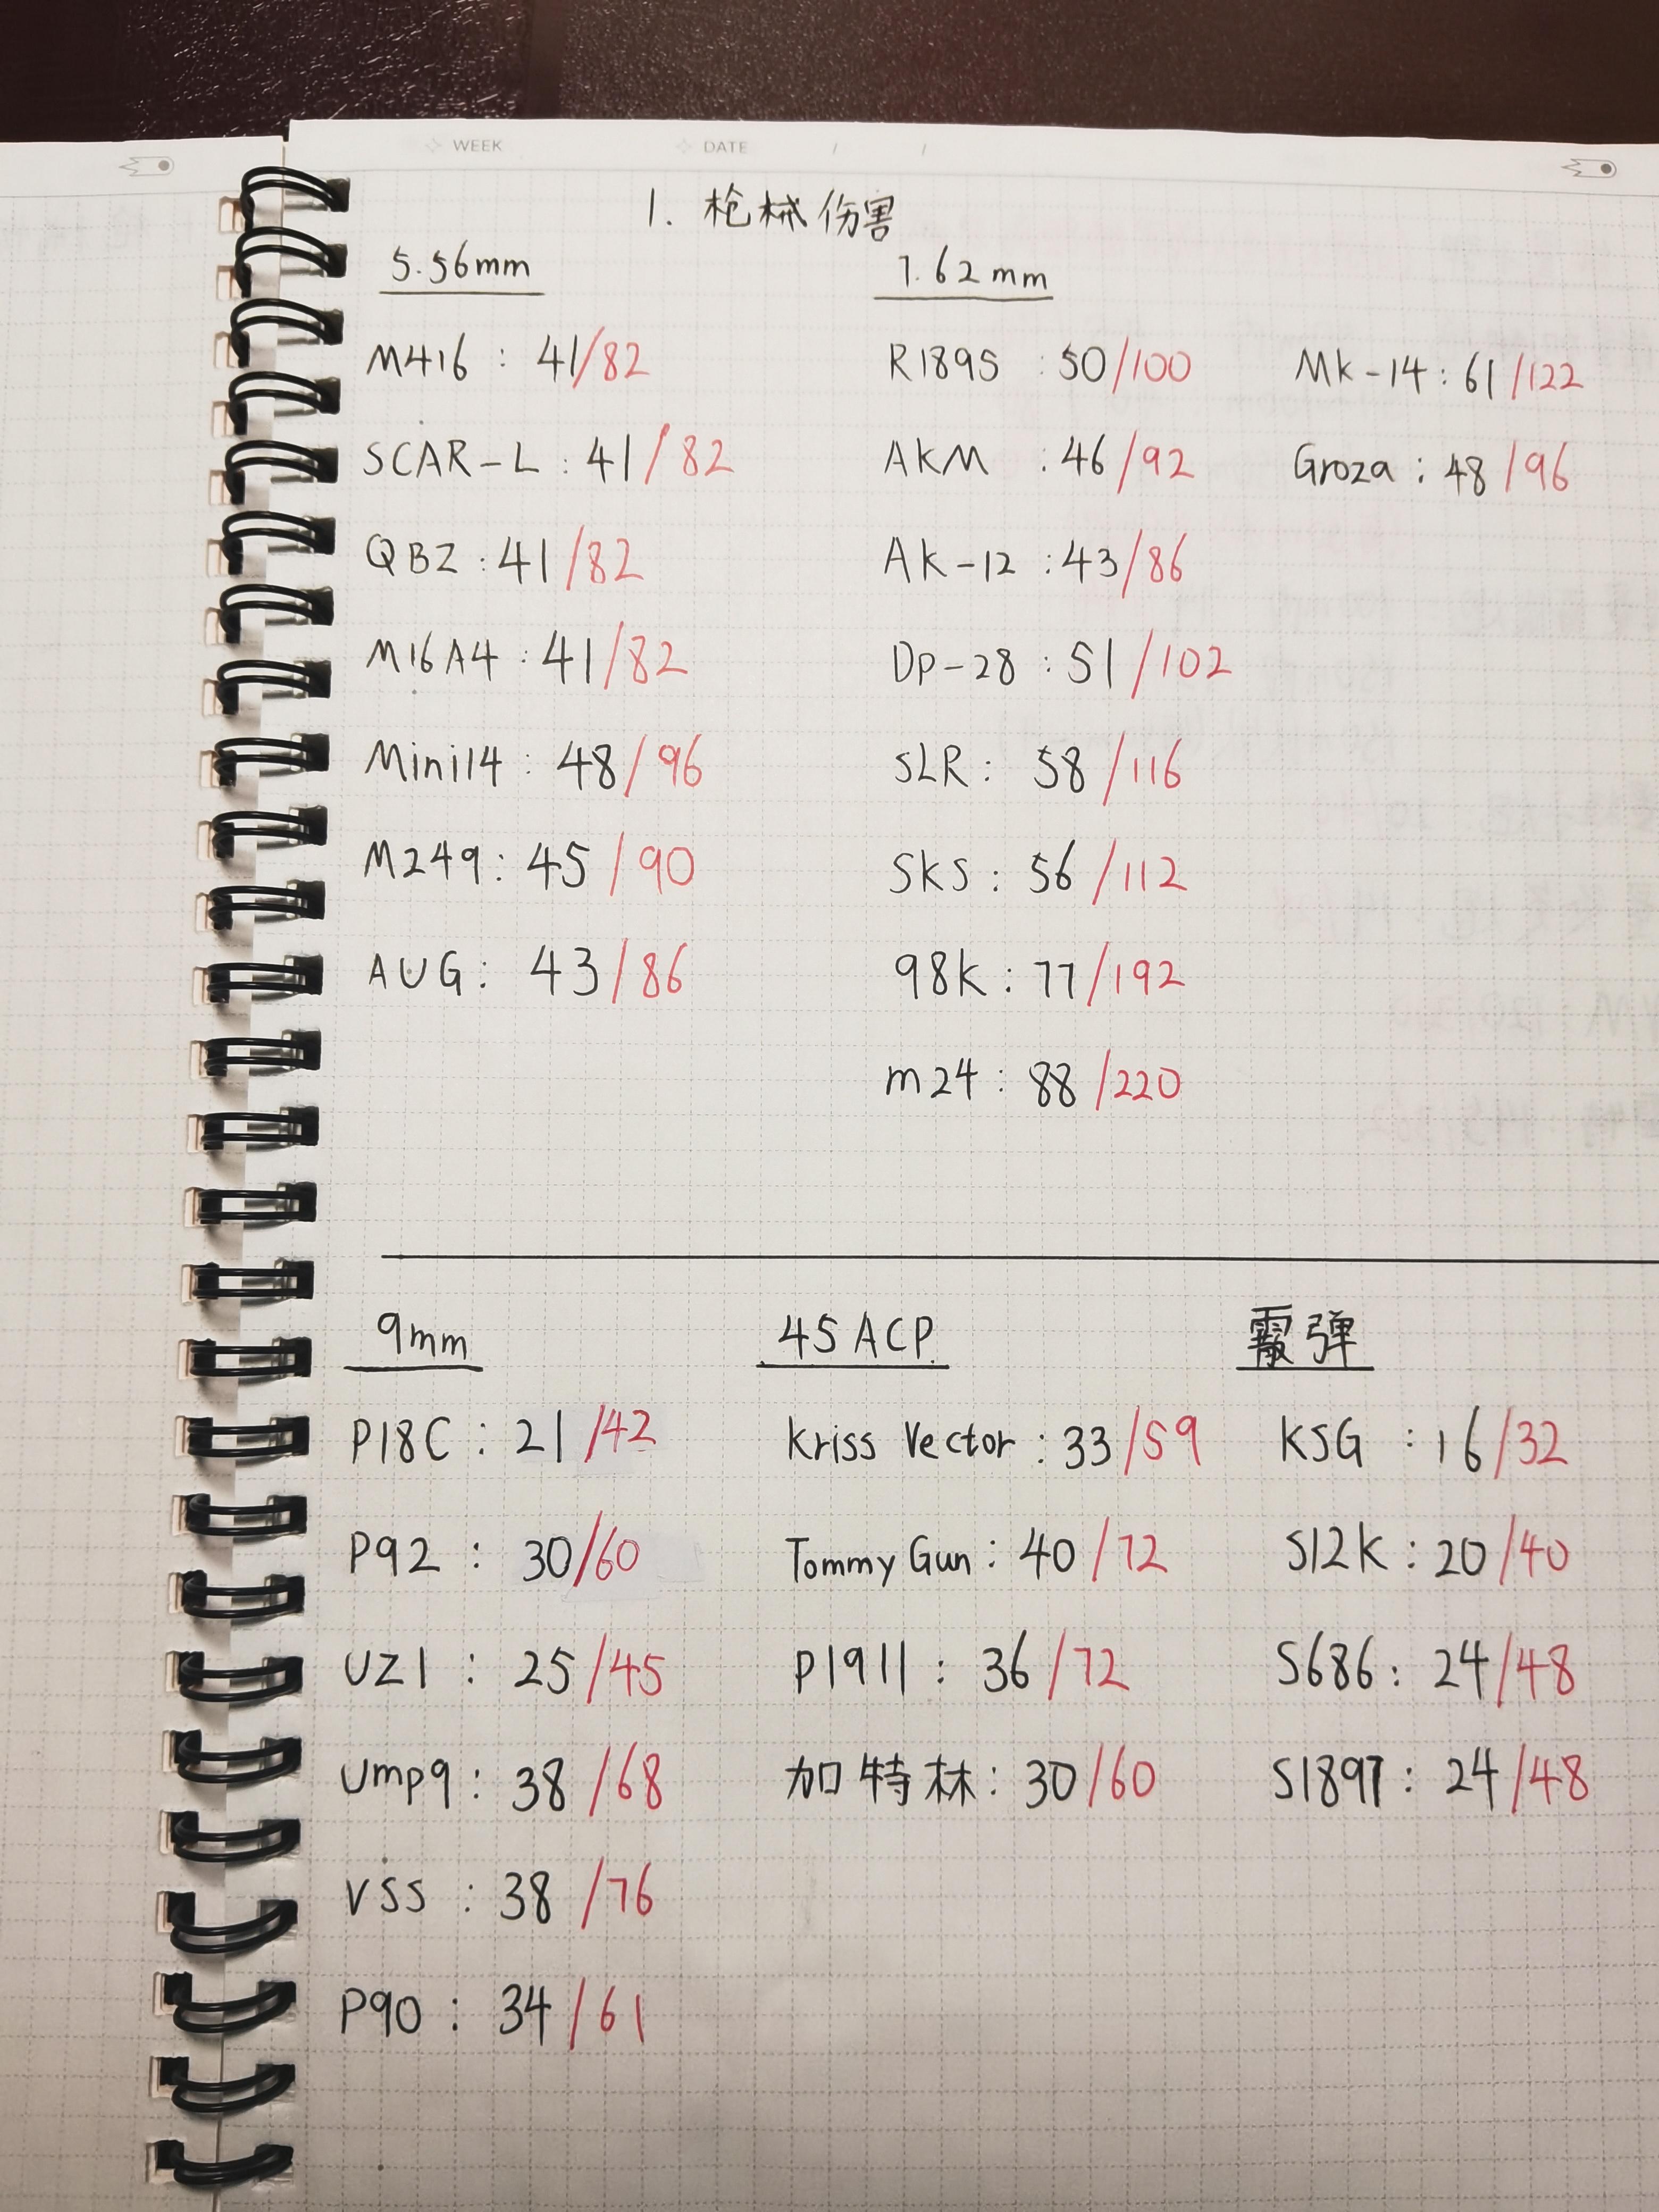 WEEK DATE / /
1. 枪械伤害
5.56mm
M416 : 41/82
SCAR-L : 41/82
QBZ : 41/82
M16A4 : 41/82
Mini14 : 48/96
M249 : 45/90
AUG : 43/86
7.62mm
R1895 : 50/100
AKM : 46/92
AK-12 : 43/86
DP-28 : 51/102
SLR : 58/116
SKS : 56/112
98K : 77/192
m24 : 88/220
Mk-14 : 61/122
Groza : 48/96
9mm
P18C : 21/42
P92 : 30/60
UZI : 25/45
Ump9 : 38/68
VSS : 38/76
P90 : 34/61
45 ACP
Kriss Vector : 33/59
Tommy Gun : 40/72
P1911 : 36/72
加特林 : 30/60
霰弹
KSG : 16/32
S12K : 20/40
S686 : 24/48
S1897 : 24/48